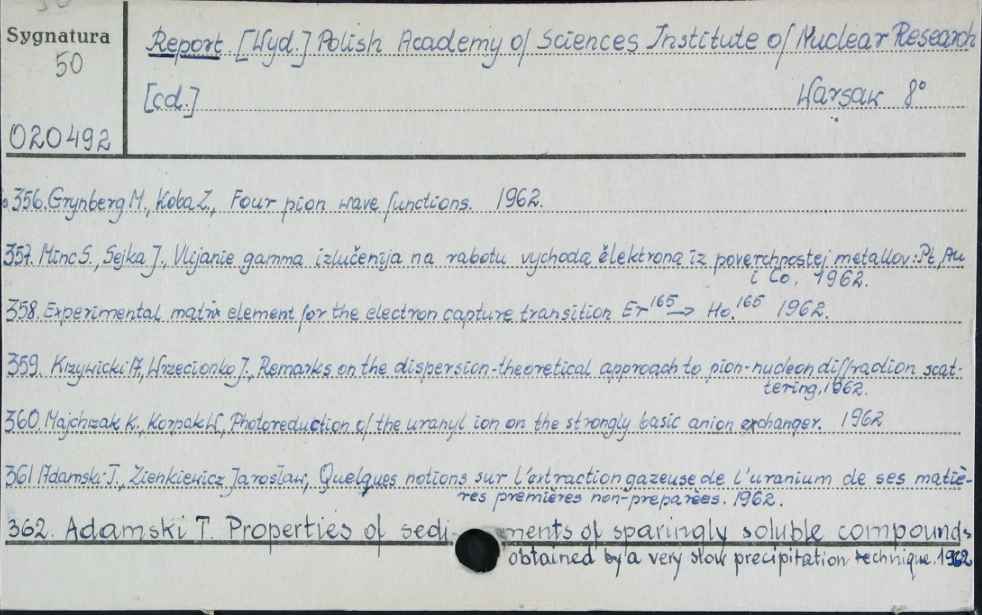 Sygnatura
50
020492
Report [Wyd.] Polish Academy of Sciences Institute of Nuclear Research
[cd.] Warsaw 8°
356. Grynberg M., Koba Z., Four pion wave functions. 1962.
357. Minc S., Sejka J., Vlijanie gamma izlučenija na rabotu vychoda èlektrona iz poverchnostej metallov: Pt, Au
i Co. 1962.
358. Experimental matrix element for the electron capture transition Er¹⁶⁵ → Ho.¹⁶⁵ 1962.
359. Krzywicki A., Wrzecionko J., Remarks on the dispersion-theoretical approach to pion-nucleon diffraction scat-
tering, 1962.
360. Majchrzak K., Korpak W., Photoreduction of the uranyl ion on the strongly basic anion exchanger. 1962
361 Adamski T., Zienkiewicz Jarosław, Quelques notions sur l'extraction gazeuse de l'uranium de ses matiè-
res premieres non-preparees. 1962.
362. Adamski T. Properties of sedi-ments of sparingly soluble compounds
obtained by a very slow precipitation technique. 1962